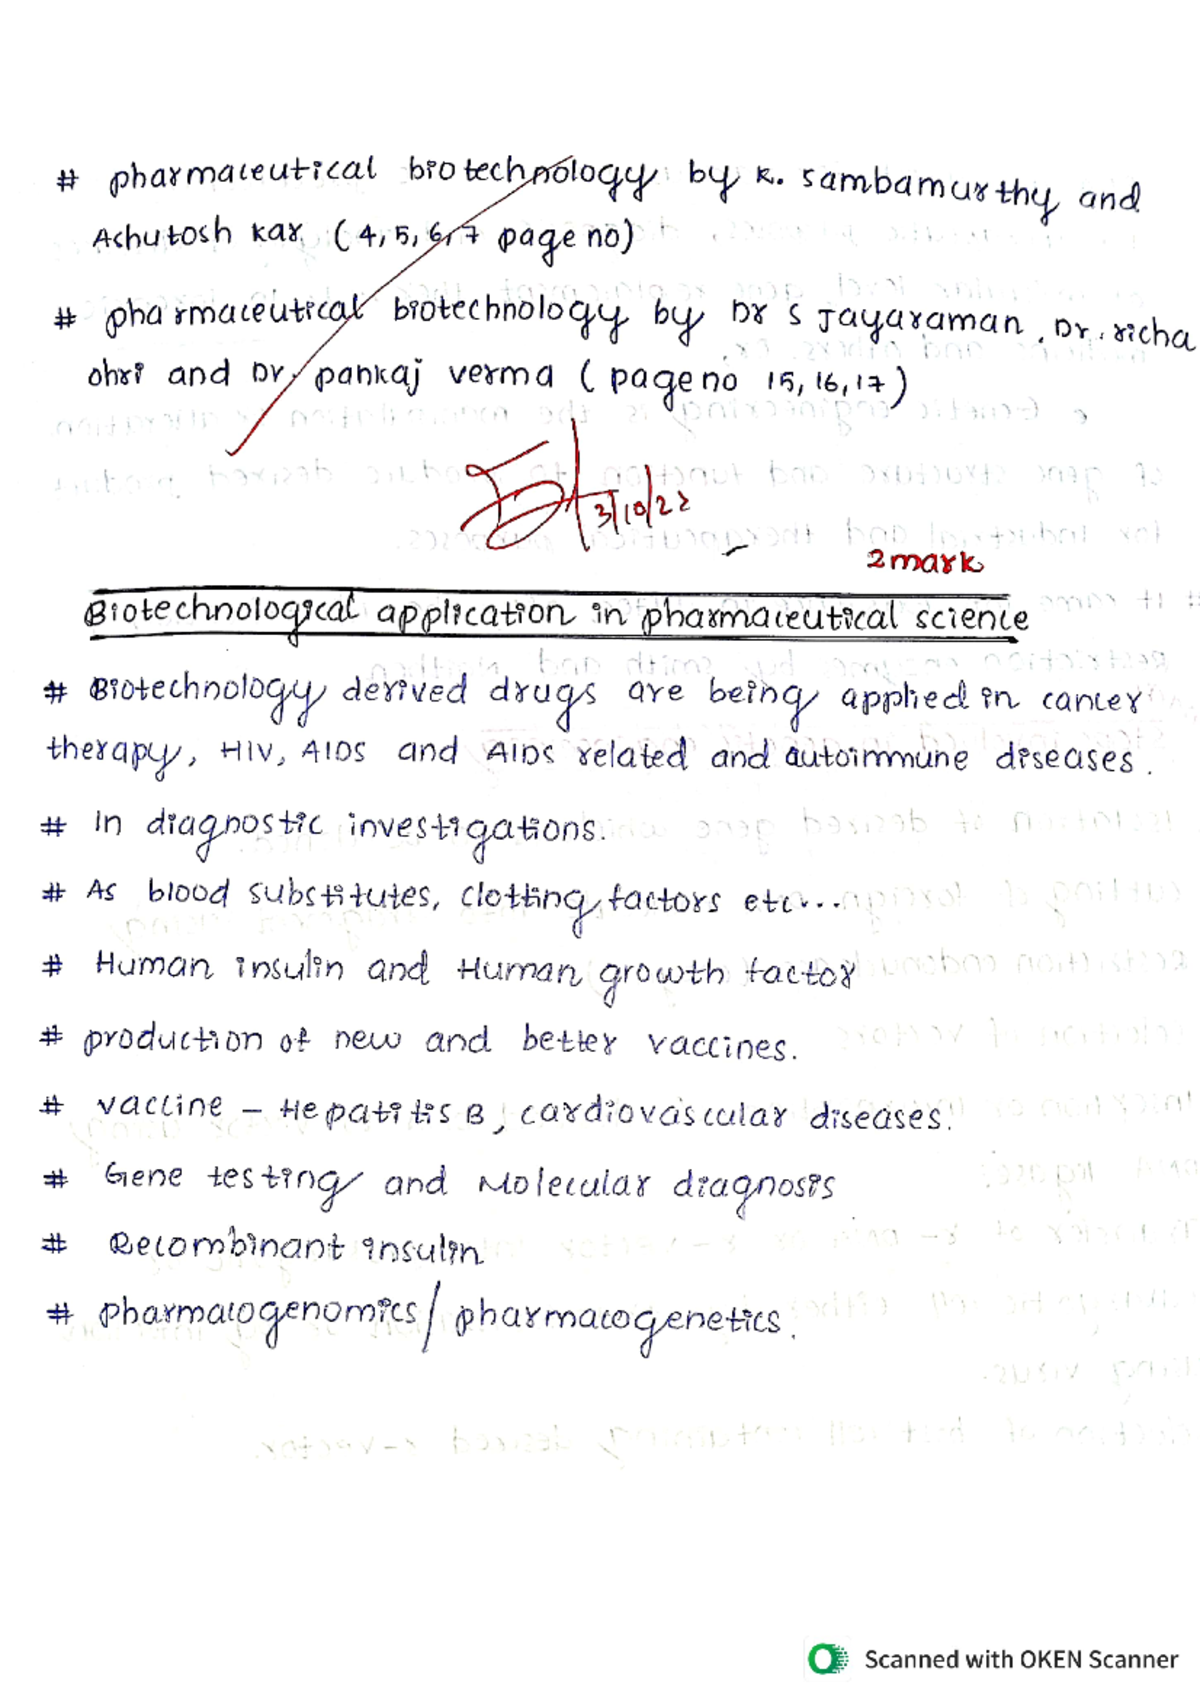 # pharmaceutical biotechnology by K. Sambamurthy and
Ashutosh Kar (4, 5, 6, 7 page no)
# pharmaceutical biotechnology by Dr S Jayaraman, Dr. richa
ohri and Dr. pankaj verma (page no 15, 16, 17)
3/10/22
2 mark
Biotechnological application in pharmaceutical science
# Biotechnology derived drugs are being applied in cancer
therapy, HIV, AIDS and AIDS related and autoimmune diseases.
# In diagnostic investigations.
# As blood substitutes, clotting factors etc...
# Human insulin and Human growth factor
# production of new and better vaccines.
# vaccine - Hepatitis B, cardiovascular diseases.
# Gene testing and Molecular diagnosis
# Recombinant insulin
# pharmacogenomics/pharmacogenetics.
Scanned with OKEN Scanner